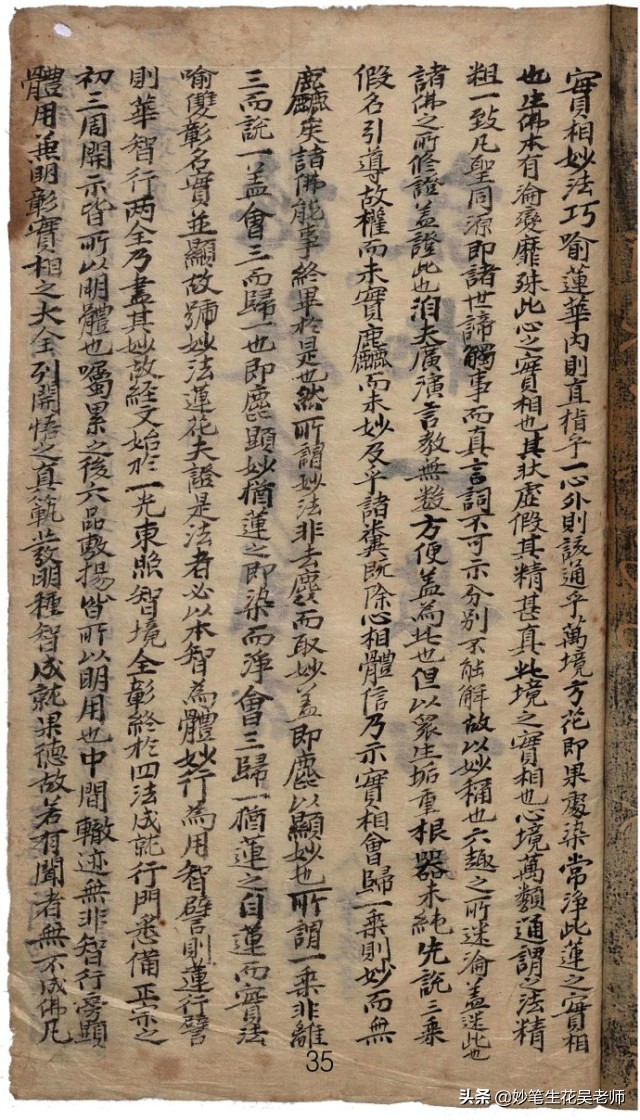 實相妙法巧喻蓮華內則直指乎一心外則該通乎萬境方花即果處染常淨此蓮之實相
也生佛本有淪變靡殊此心之實相也其狀虛假其精甚真此境之實相也心境萬類通謂之法精
粗一致凡聖同源即諸世諦觸事而真言詞不可示分別不能解故以妙稱也六趣之所迷淪盖迷此也
諸佛之所修證盖證此也洎夫廣演言教無數方便盖為此也但以衆生垢重根器未純先說三乘
假名引導故權而未實麤而未妙及乎諸糞既除心相體信乃示實相會歸一乘則妙而無
麤矣諸佛能事終畢於是也然所謂妙法非去麤而取妙盖即麤以顯妙也所謂一乘非離
三而說一盖會三而歸一也即麤顯妙猶蓮之即染而淨會三歸一猶蓮之自蓮而實法
喻雙彰名實並顯故號妙法蓮花夫證是法者必以本智為體妙行為用智譬則蓮行譬
則華智行两全乃盡其妙故経文始於一光東照智境全彰終於四法成就行門悉備正宗之
初三周開示皆所以明體也囑累之後六品敷揚皆所以明用也中間轍迹無非智行旁顯
體用兼明彰實相之大全列開悟之真範發明種智成就果德故若有聞者無不成佛凡
35
头条 @妙笔生花吴老师